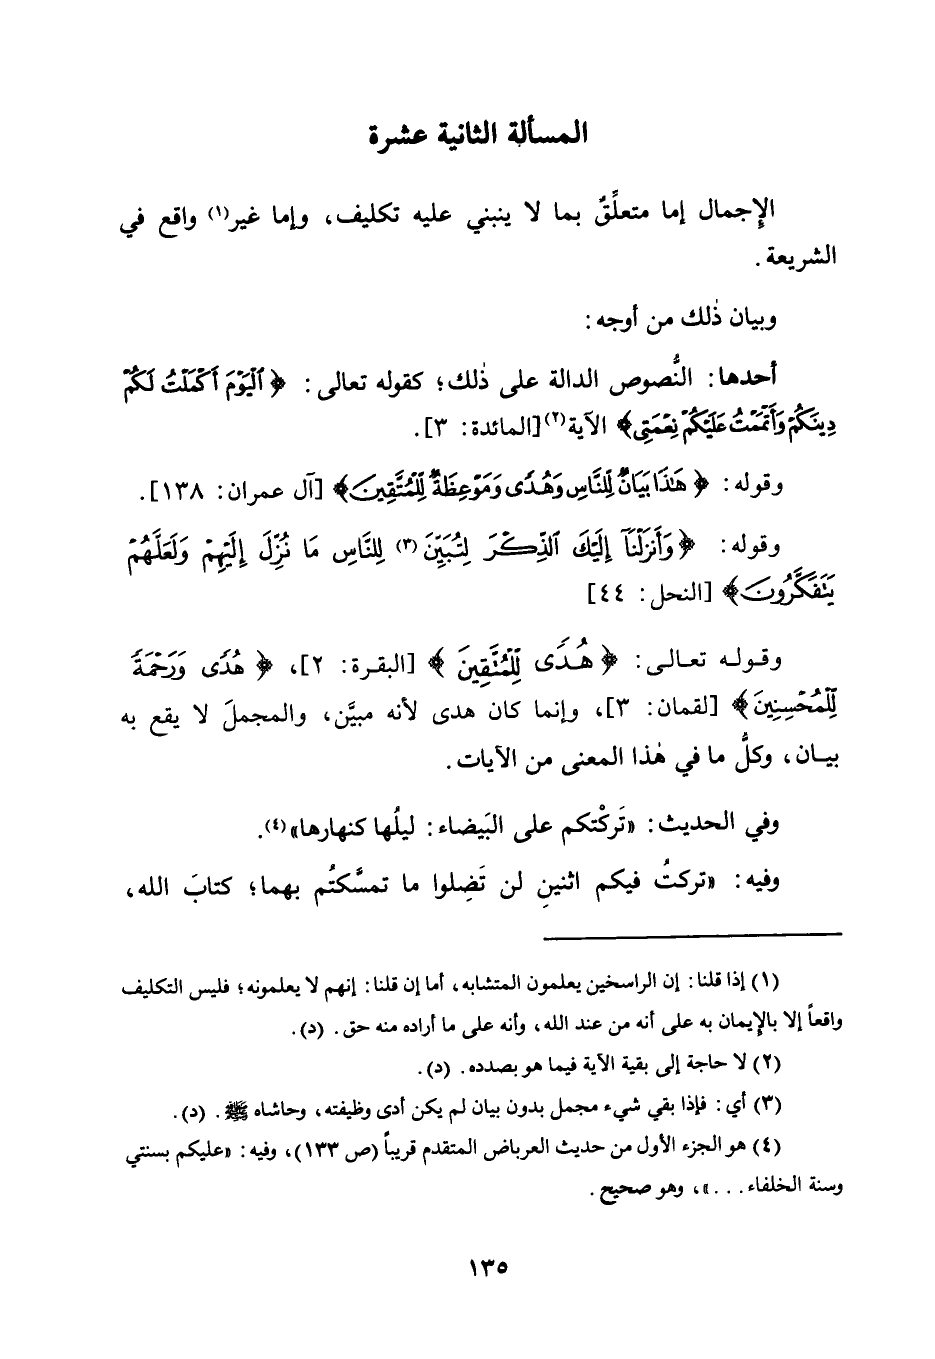 المسألة الثانية عشرة
الإجمال إما متعلِّقٌ بما لا ينبني عليه تكليف، وإما غير(١) واقع في
الشريعة.
وبيان ذٰلك من أوجه:
أحدها: النُّصوص الدالة على ذٰلك؛ كقوله تعالى: ﴿ٱلْيَوْمَ أَكْمَلْتُ لَكُمْ
دِينَكُمْ وَأَتْمَمْتُ عَلَيْكُمْ نِعْمَتِى﴾ الآية(٢) [المائدة: ٣].
وقوله: ﴿هَٰذَا بَيَانٌ لِّلنَّاسِ وَهُدًى وَمَوْعِظَةٌ لِّلْمُتَّقِينَ﴾ [آل عمران: ١٣٨].
وقوله: ﴿وَأَنزَلْنَآ إِلَيْكَ ٱلذِّكْرَ لِتُبَيِّنَ(٣) لِلنَّاسِ مَا نُزِّلَ إِلَيْهِمْ وَلَعَلَّهُمْ
يَتَفَكَّرُونَ﴾ [النحل: ٤٤]
وقوله تعالى: ﴿هُدًى لِّلْمُتَّقِينَ﴾ [البقرة: ٢]، ﴿هُدًى وَرَحْمَةً
لِّلْمُحْسِنِينَ﴾ [لقمان: ٣]، وإنما كان هدى لأنه مبيَّن، والمجملَ لا يقع به
بيان، وكلُّ ما في هٰذا المعنى من الآيات.
وفي الحديث: «تَركْتكم على البَيضاء: ليلُها كنهارها»(٤).
وفيه: «تركتُ فيكم اثنينِ لن تَضِلوا ما تمسَّكتُم بهما؛ كتابَ الله،
(١) إذا قلنا: إن الراسخين يعلمون المتشابه، أما إن قلنا: إنهم لا يعلمونه؛ فليس التكليف
واقعاً إلا بالإيمان به على أنه من عند الله، وأنه على ما أراده منه حق. (د).
(٢) لا حاجة إلى بقية الآية فيما هو بصدده. (د).
(٣) أي: فإذا بقي شيء مجمل بدون بيان لم يكن أدى وظيفته، وحاشاه ﷺ. (د).
(٤) هو الجزء الأول من حديث العرباض المتقدم قريباً (ص ١٣٣)، وفيه: «عليكم بسنتي
وسنة الخلفاء...»، وهو صحيح.
١٣٥